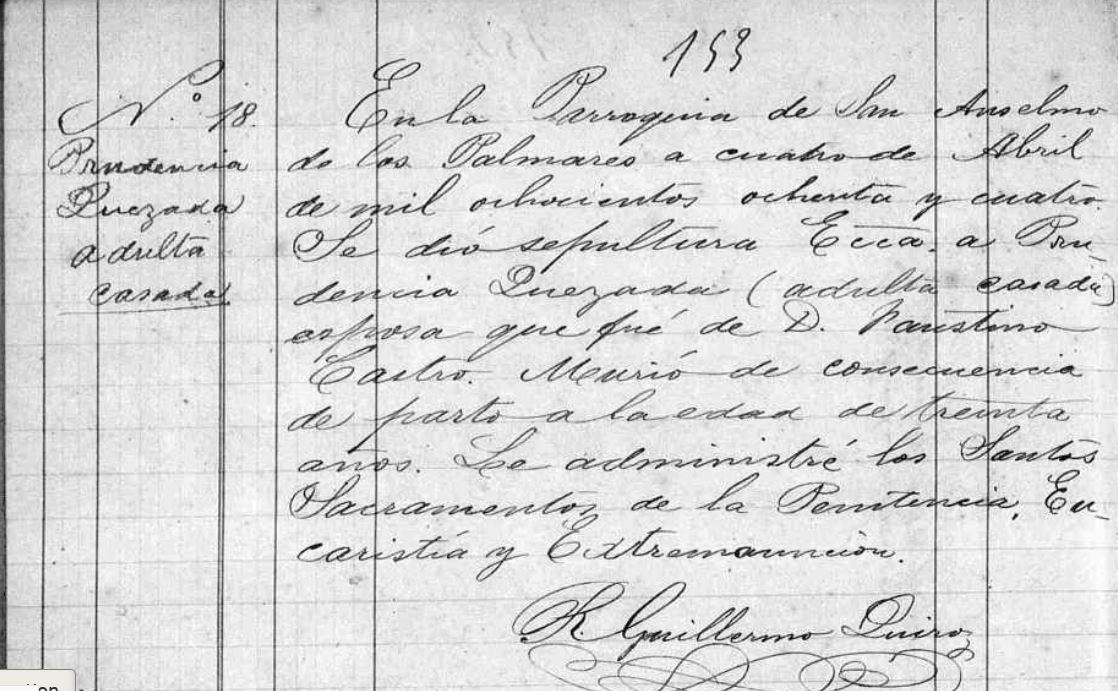 153
N.° 18.
Prudencia
Quezada
adulta
casada
En la Parroquia de San Anselmo
de los Palmares a cuatro de Abril
de mil ochocientos ochenta y cuatro.
Se dió sepultura Ecca. a Pru-
dencia Quezada (adulta casada)
esposa que fué de D. Faustino
Castro. Murió de consecuencia
de parto a la edad de treinta
años. Le administré los Santos
Sacramentos de la Penitencia, Eu-
caristía y Extremaunción.
R. Guillermo Quiroz